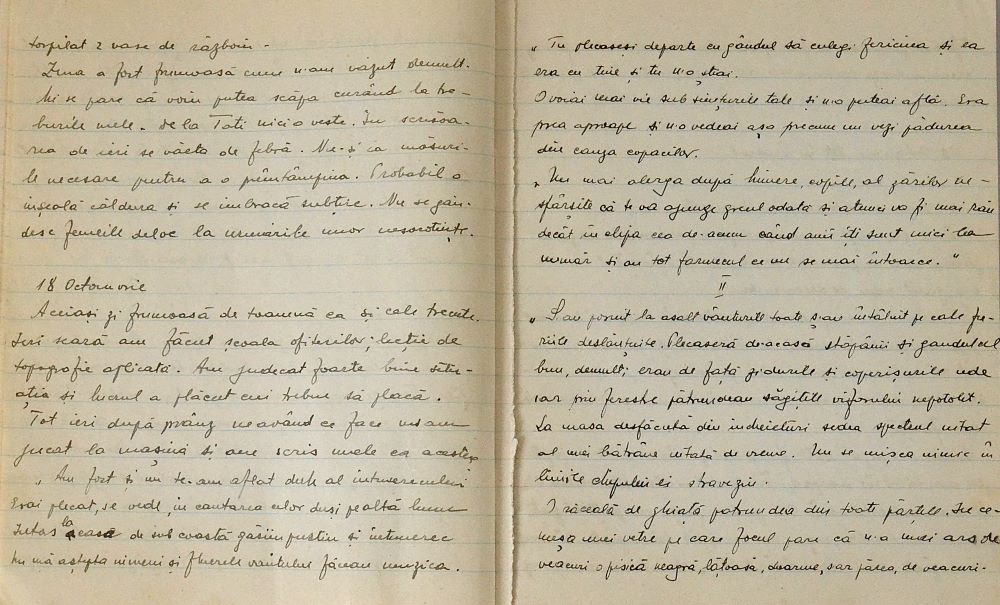 torpilat 2 vase de război.
Ziua a fost frumoasă cum n-am văzut demult.
Mi se pare că voiu putea scăpa curând la tre-
burile mele. De la Toti nicio veste. În scrisoa-
rea de ieri se văeta de febră. Nu-și ia măsuri-
le necesare pentru a o preîntâmpina. Probabil o
înșeală căldura și se îmbracă subțire. Nu se gân-
desc femeile deloc la urmările unor nesocotințe.
18 Octomvrie
Aceiași zi frumoasă de toamnă ca și cele trecute.
Ieri seară am făcut școala ofițerilor; lecție de
topografie aplicată. Am judecat foarte bine situ-
ația și lucrul a plăcut cui trebue să placă.
Tot ieri după prânz neavând ce face m-am
jucat la mașină și am scris unele ca acestea
„Am fost și nu te-am aflat duh al întunerecului
Erai plecat, se vede, în cautarea celor duși pe altă lume
Intors la casa de sub coastă găsii pustiu și întunerec
Nu mă aștepta nimeni și fluerele vantului făceau muzica.
„Tu plecaseși departe cu gândul să culegi fericirea și ea
era cu tine și tu n-o știai.
O voiai mai vie sub simțurile tale și n-o puteai afla. Era
prea aproape și n-o vedeai așa precum nu vezi pădurea
din cauza copacilor.
„Nu mai alerga după himere, copile, al zărilor ne-
sfârșite că te va ajunge greul odata și atunci va fi mai rău
decât în clipa cea de-acum când anii îți sunt mici la
număr și au tot farmecul ce nu se mai întoarce."
II
„S-au pornit la asalt vânturile toate s-au întâlnit pe cale fu-
riile deslănțuite. Plecaseră de-acasă stăpânii și gandul cel
bun, demult; erau de față zidurile și coperișurile ude
iar prin fereste pătrundeau săgețile viforului nepotolit.
La masa desfăcută din încheieturi sedea spectrul uitat
al unei bătrâne uitată de vreme. Nu se mișca nimic în
liniile chipului ei straveziu.
O răceală de ghiață patrundea din toate părțile. In ce-
nușa unei vetre pe care focul pare că n-a mai ars de
veacuri o pisică neagră, lățoasa, doarme, s-ar părea, de veacuri.